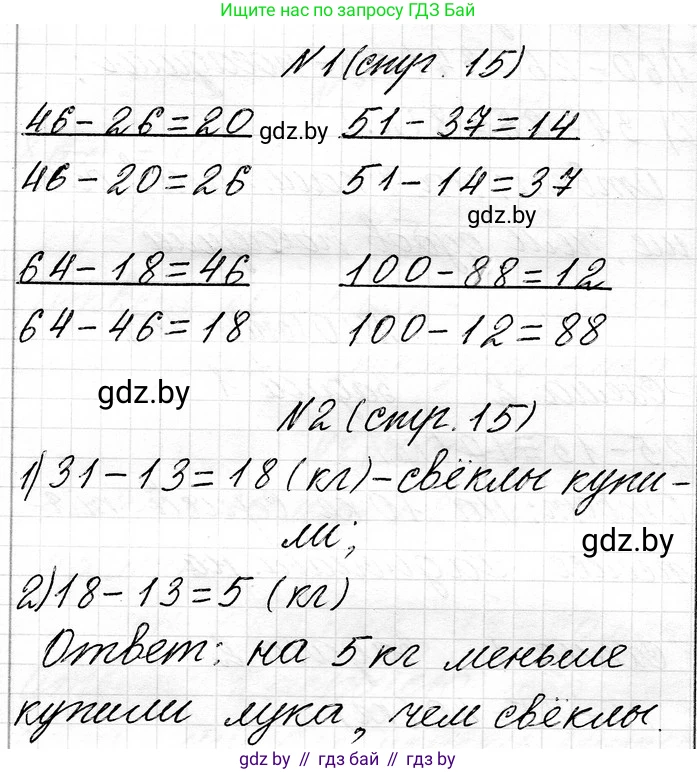 Ищите нас по запросу ГДЗ Бай
№1 (стр. 15)
46-26=20 gdz.by 51-37=14
46-20=26 51-14=37
gdz.by
64-18=46 100-88=12
64-46=18 100-12=88
gdz.by
№2 (стр. 15)
1) 31-13=18 (кг) - свёклы купи-
ли;
gdz.by
2) 18-13=5 (кг)
Ответ: на 5 кг меньше
купили лука, чем свёклы.
gdz.by // гдз бай // gdz.by